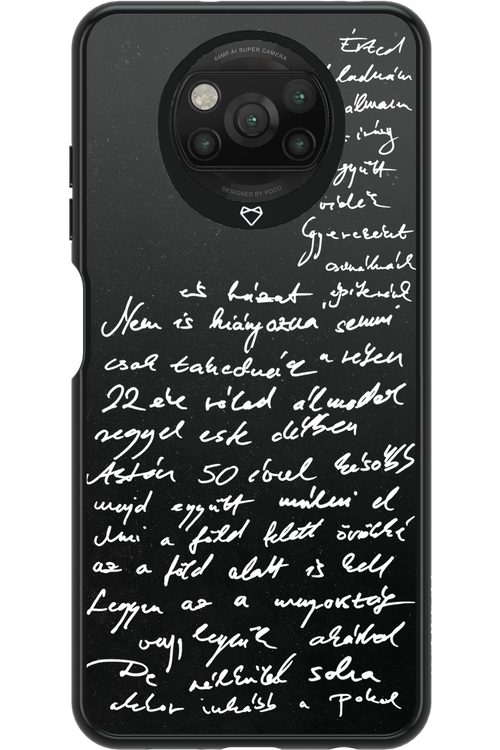 64MP AI SUPER CAMERA
DESIGNED BY POCO
Érted
együtt
örökké
Gyerekeket
csinálnák
és házat építenék
Nem is hiányozna semmi
csak takednák a réten
22 éve rólad álmodok
reggel este délben
Aztán 50 évvel később
majd együtt múlni el
Ami a föld felett örökké
az a föld alatt is kell
Legyen az a mennyország
vagy legyünk akárhol
De nélküled soha
akkor inkább a pokol